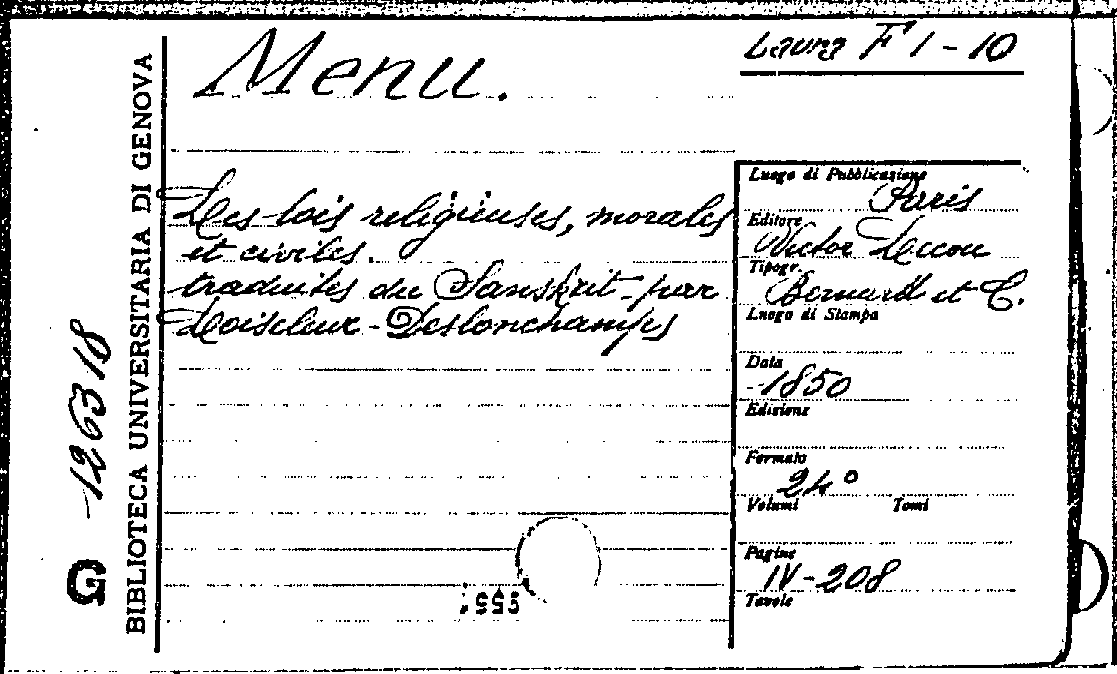 Menu.
Laura F 1 - 10
Les lois religieuses, morales
et civiles.
traduites du Sanskrit par
Loiseleur-Deslonchamps
Luogo di Pubblicazione
Paris
Editore
Victor Lecou
Tipogr.
Bernard et C.
Luogo di Stampa
Data
1850
Edizione
Formato
24°
Volumi Tomi
Pagine
IV-208
Tavole
BIBLIOTECA UNIVERSITARIA DI GENOVA
G 126318